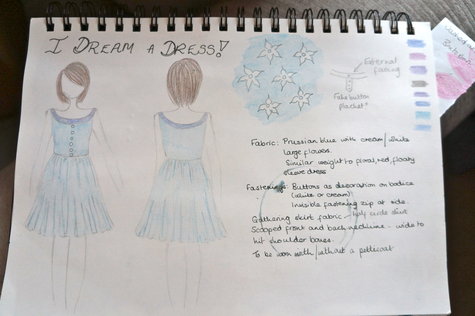 I DREAM A DRESS!
External
facing
Fake button
placket
Fabric: Prussian blue with cream/white
large flowers.
Similar weight to floral, red, floaty
sleeve dress
Fastenings: Buttons as decoration on bodice
(white or cream)
Invisible fastening zip at side.
Gathering skirt fabric - half circle skirt
Scooped front and back neckline - wide to
hit shoulder bones.
To be worn with/without a petticoat